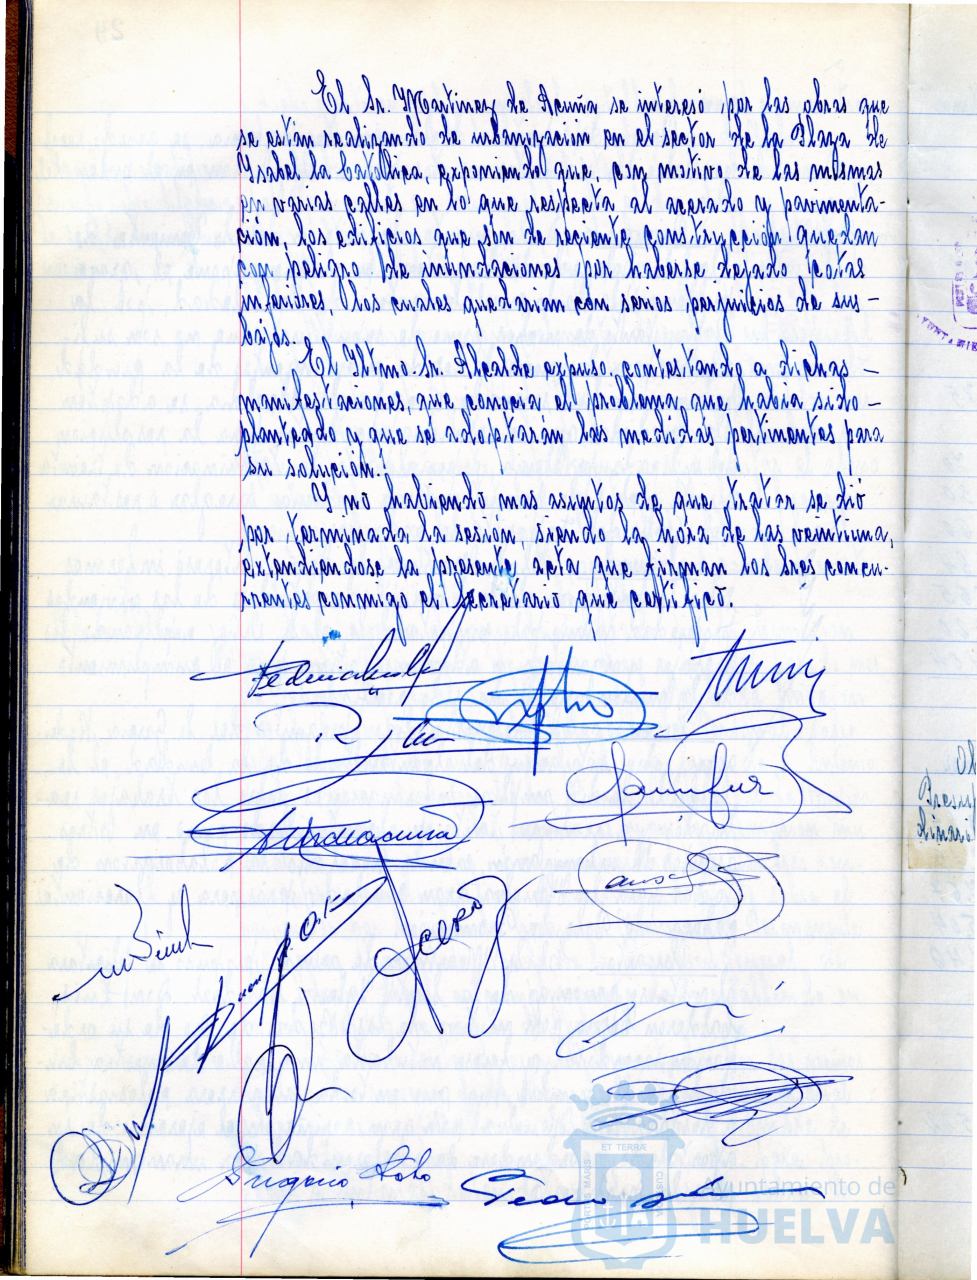 El Sr. Martinez de Acuña se interesó por las obras que
se están realizando de urbanización en el sector de la Plaza de
Ysabel la Católica, exponiendo que, con motivo de las mismas
en varias calles en lo que respecta al acerado y pavimenta-
ción, los edificios que son de reciente construcción quedan
con peligro de inundaciones por haberse dejado cotas
inferiores, los cuales quedarian con serios perjuicios de sus -
bajos.
El Iltmo. Sr. Alcalde expuso, contestando a dichas -
manifestaciones, que conocia el problema que habia sido -
planteado y que se adoptarán las medidas pertinentes para
su solución.
Y no habiendo mas asuntos de que tratar se dió
por terminada la sesión, siendo la hora de las veintiuna,
extendiendose la presente acta que firman los Sres concu-
rrentes conmigo el Secretario que certifico.
ET TERRÆ
Ayuntamiento de
HUELVA